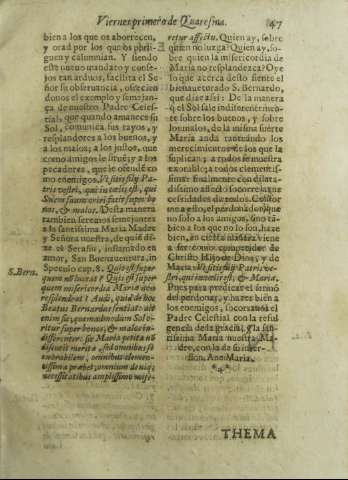 Viernes primero de Quaresma. 47
bien a los que os aborrecen,
y orad por los que os persi-
guen y calumnian. Y siendo
este nuevo mandato y conse-
jo tan arduo, facilita el Se-
ñor su observancia, ofrecien
donos el exemplo y semejan-
ça de nuestro Padre Celes-
tial, que quando amanece su
Sol, comunica sus rayos, y
resplandores a los buenos, y
a los malos; a los justos, que
como amigos le sirven, y a los
pecadores, que le ofenden co
mo enemigos. Vt sitis filij Pa-
tris vestri, qui in cælis est, qui
Solem suum oriri facit super bo
nos, & malos. Desta manera
tambien seremos semejantes
a la santissima Maria Madre
y Señora nuestra, de quiē di-
ze el Serafin, inflamado en
amor, San Buenaventura, in
Speculo cap. 8. Quis est super
S. Bern. quem nō luceat? Quis est super
quem misericordia Mariæ non
resplendeat? Audi, quid de hoc
Beatus Bernardus sentiat: ait
enim sic; quemadmodum Sol o-
ritur super bonos, & malos in-
differenter: sic Maria petita nō
discutit merita, sed omnibus se
exorabilem, omnibus clemen-
tissimam præbet; omnium deniq;
necessitatibus amplissimo mise-
retur affectu. Quien ay, sobre
quien no luzga? Quien ay, so-
bre quien la misericordia de
Maria no resplandezca? Oye
lo que acerca desto siente el
bienaventurado S. Bernardo,
que dize assi: De la manera
q̄ el Sol sale indiferentemen-
te sobre los buenos, y sobre
los malos, de la misma suerte
Maria
merecimientos de los que la
suplican; a todos se muestra
exorable; a todos clementis-
sima: finalmente con dilata-
dissimo afecto socorre las ne-
cessidades de todos.
no solo a los amigos, sino tã-
bien a los que no lo son, haze
bien,
Christo Hijo de Dios, y de
Maria: Vt sitis filij Patris ve-
stri, qui in cælis est, & Mariæ.
Pues para predicar el sermō
del perdonar, y hazer bien a
los enemigos, socorranos el
Padre Celestial con la reful
gencia de la gracia, y la san-
tissima Maria nuestra Ma-
dre, con la de su interces-
sion. Ave Maria.
THEMA